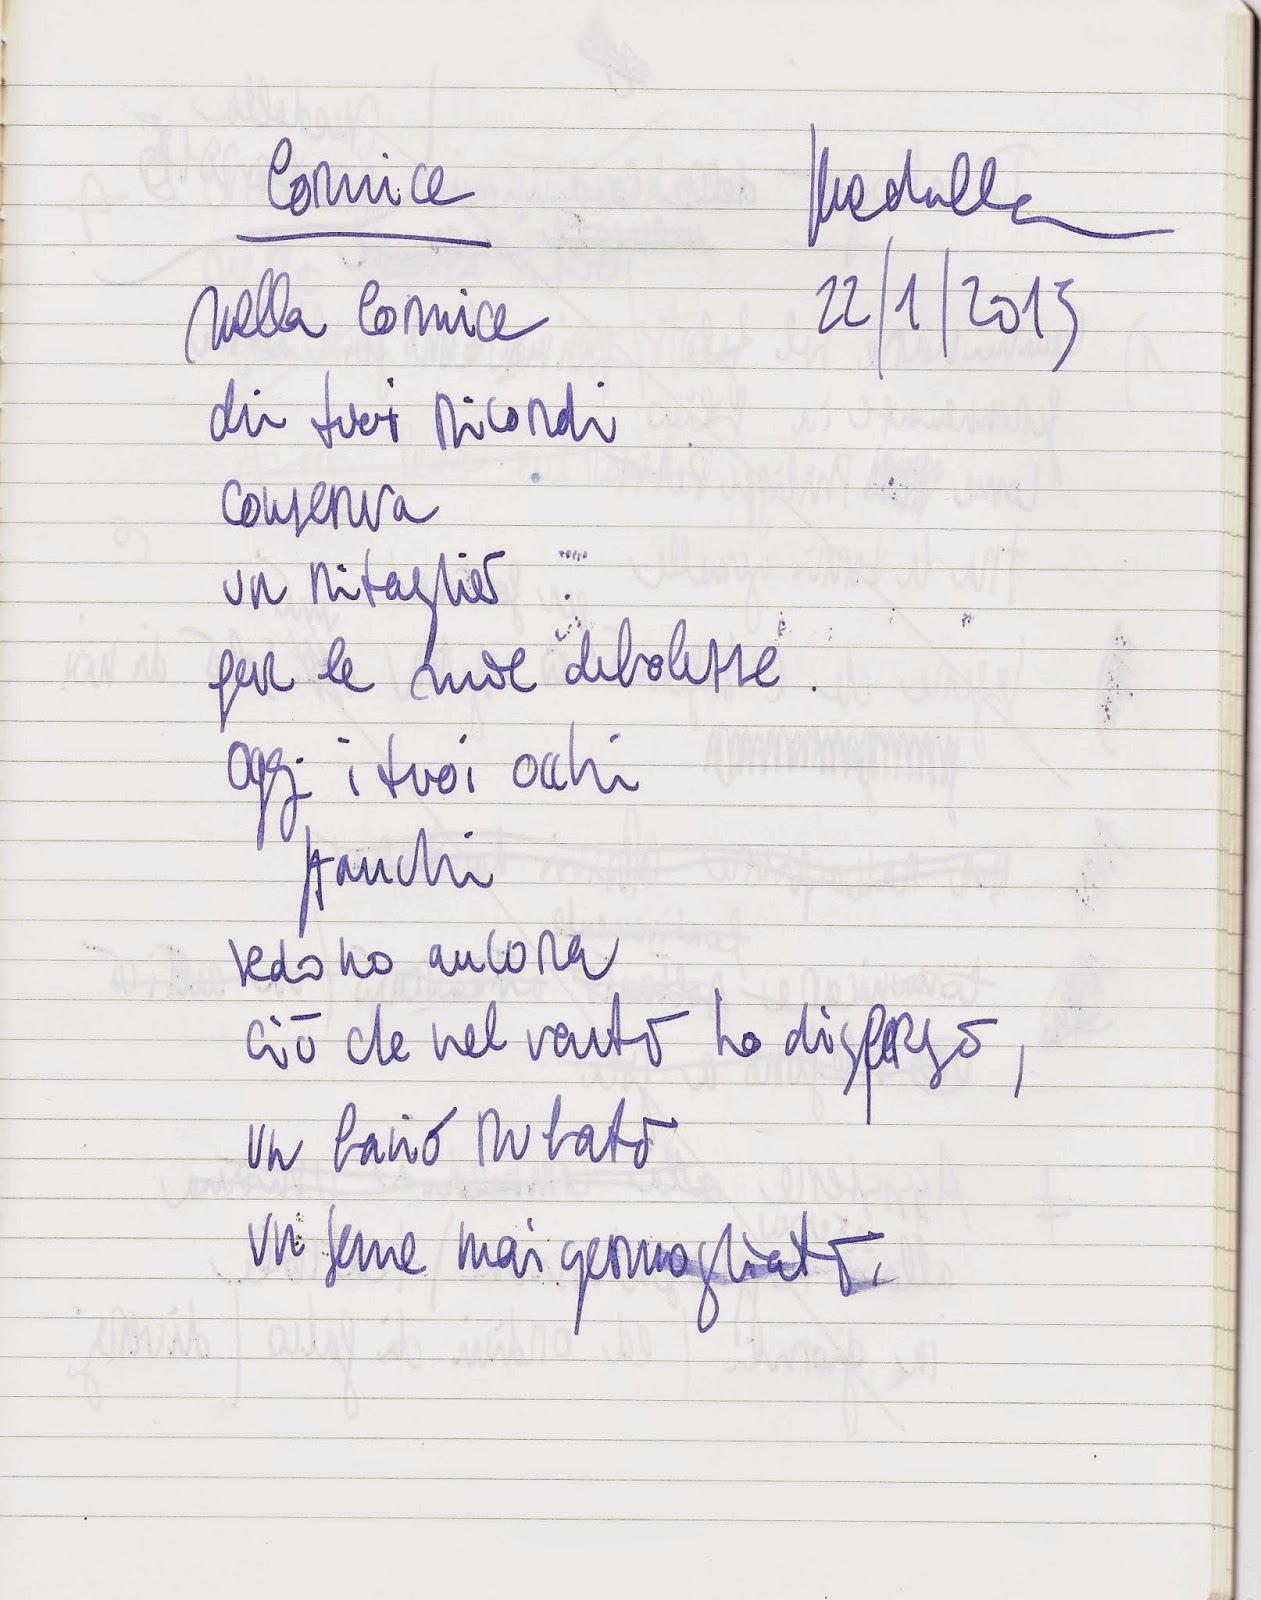 Cornice
Madulla
22/1/2013
nella cornice
dei tuoi ricordi
conserva
un ritaglio
per le mie debolezze.
Oggi i tuoi occhi
stanchi
vedono ancora
ciò che nel vento ho disperso,
un bacio rubato
un seme mai germogliato.